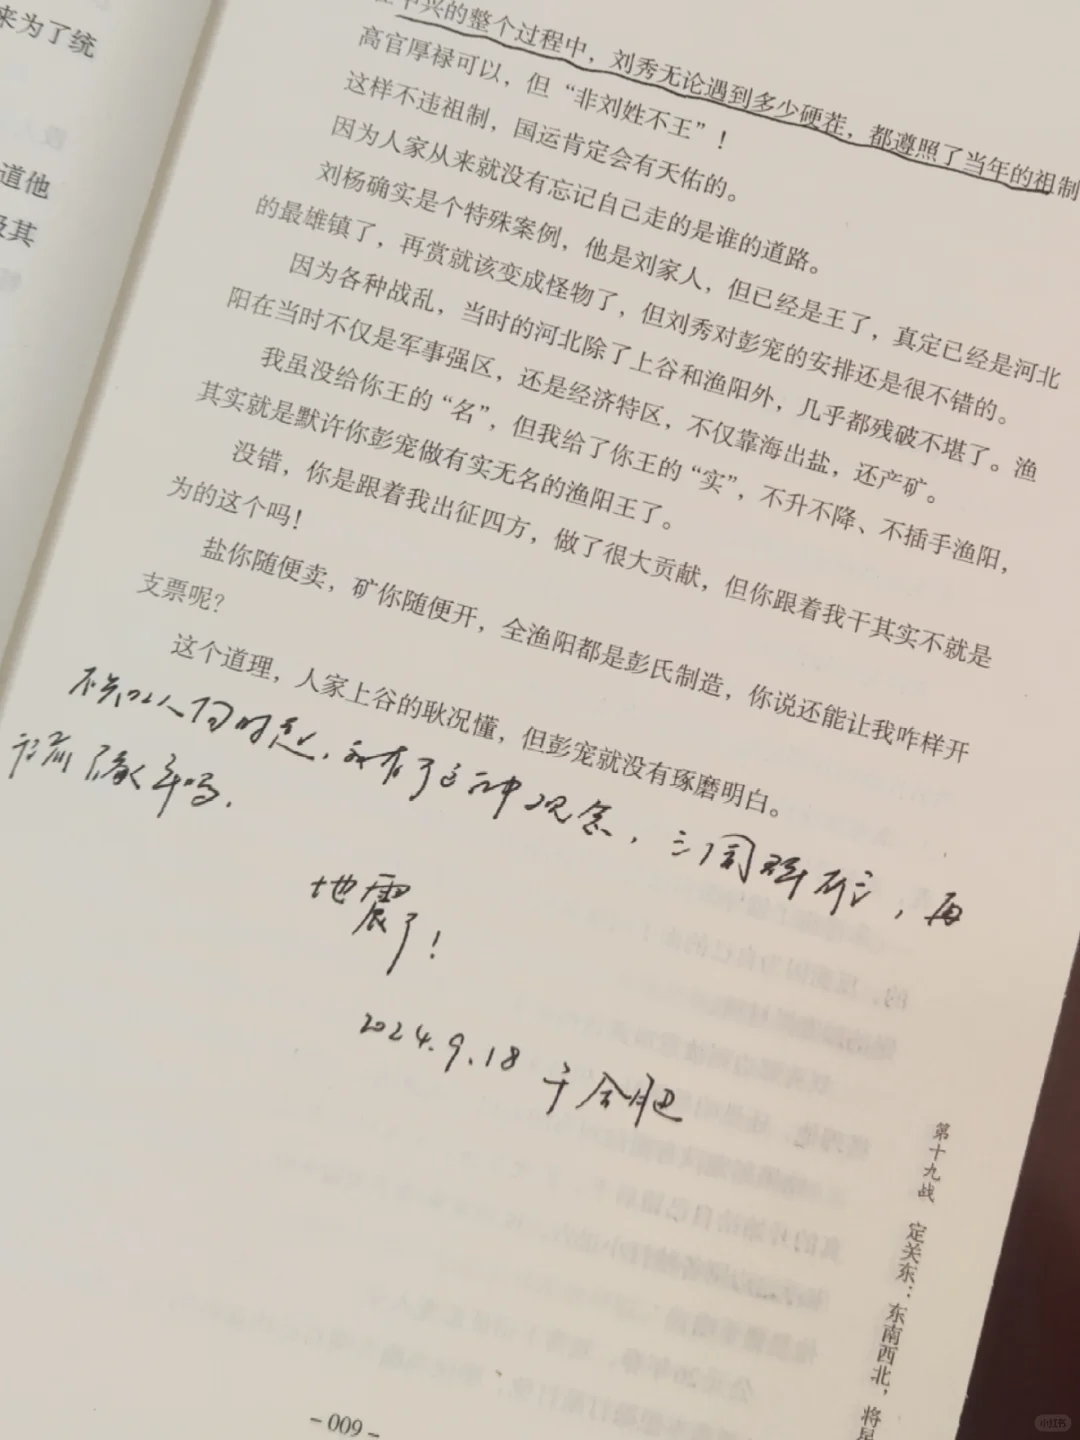 来为了统
道他
及其
中兴的整个过程中，刘秀无论遇到多少硬茬，都遵照了当年的祖制
高官厚禄可以，但“非刘姓不王”！
这样不违祖制，国运肯定会有天佑的。
因为人家从来就没有忘记自己走的是谁的道路。
刘杨确实是个特殊案例，他是刘家人，但已经是王了，真定已经是河北
的最雄镇了，再赏就该变成怪物了，但刘秀对彭宠的安排还是很不错的。
因为各种战乱，当时的河北除了上谷和渔阳外，几乎都残破不堪了。渔
阳在当时不仅是军事强区，还是经济特区，不仅靠海出盐，还产矿。
我虽没给你王的“名”，但我给了你王的“实”，不升不降、不插手渔阳，
其实就是默许你彭宠做有实无名的渔阳王了。
没错，你是跟着我出征四方，做了很大贡献，但你跟着我干其实不就是
为的这个吗！
盐你随便卖，矿你随便开，全渔阳都是彭氏制造，你说还能让我咋样开
支票呢？
这个道理，人家上谷的耿况懂，但彭宠就没有琢磨明白。
人何时起，有了这种观念，
地震了！
2024.9.18 于合肥
第十九战 定关东：东南西北，将星
-009-
小红书